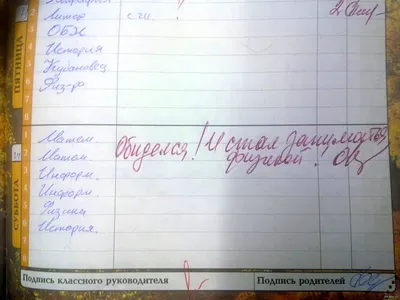 Литер с.и.
ОБЖ
История
Кубановед.
Физ-ра
ПЯТНИЦА
Матем.
Матем.
Информ.
Информ.
Физика
История.
СУББОТА
Обиделся! И стал заниматься
физикой!
Подпись классного руководителя
Подпись родителей